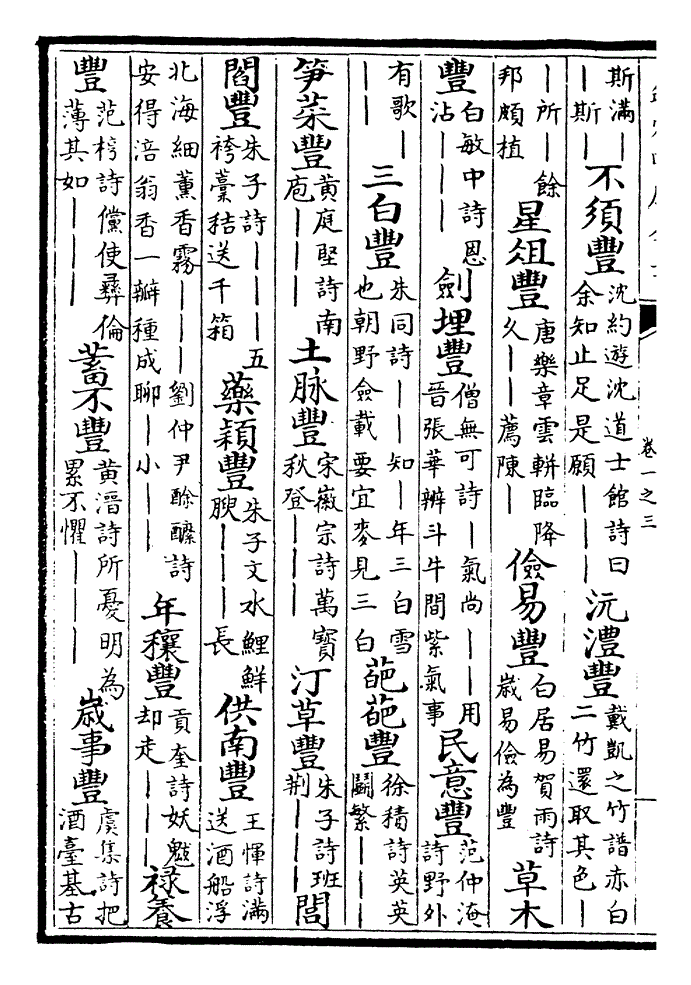 卷一之三
斯滿｜｜斯｜不須豐沈約遊沈道士館詩曰余知止足是願｜｜｜沅澧豐戴凱之竹譜赤白二竹還取其色｜
｜所｜餘邦頗植星俎豐唐樂章雲軿臨降久｜｜薦陳｜儉易豐白居易賀雨詩歲易儉為豐草木
豐白敏中詩恩沾｜｜｜劍埋豐僧無可詩｜氣尚｜｜用晉張華辨斗牛間紫氣事民意豐范仲淹詩野外
有歌｜｜｜三白豐朱同詩｜｜知｜年三白雪也朝野僉載要宜麥見三白葩葩豐徐積詩英英鬭繁｜｜｜
笋菜豐黃庭堅詩南庖｜｜｜土脉豐宋徽宗詩萬寶秋登｜｜｜汀草豐朱子詩班荆｜｜｜閭
閻豐朱子詩｜｜｜五袴藁秸送千箱藥穎豐朱子文水鯉鮮腴｜｜｜長供南豐王惲詩滿送酒船浮
北海細薰香霧｜｜｜劉仲尹酴醾詩安得涪翁香一瓣種成聊｜小｜｜年穰豐貢奎詩妖魃却走｜｜｜祿養
豐范梈詩儻使彝倫薄其如｜｜｜蓄不豐黃溍詩所憂明為累不懼｜｜｜歲事豐虞集詩把酒臺基古